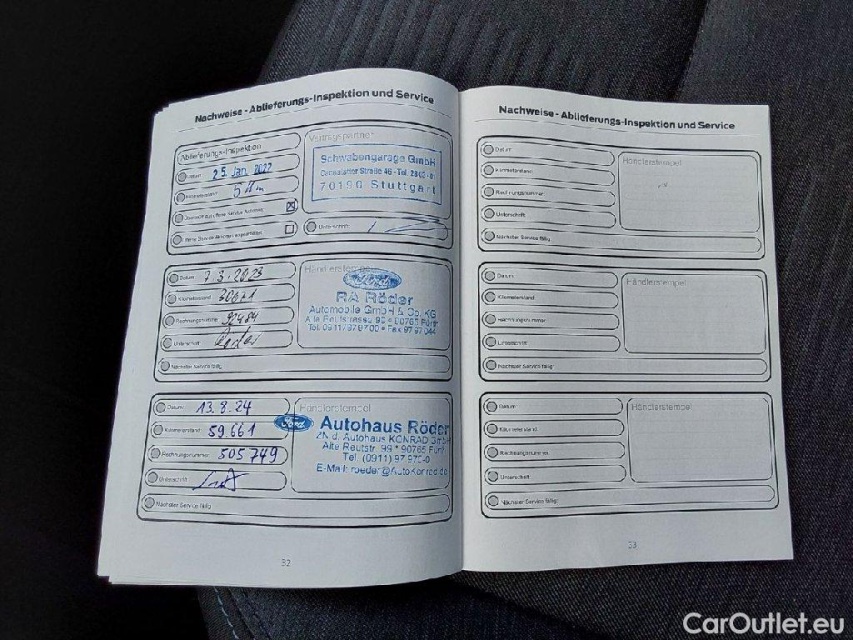 Nachweise - Ablieferungs-Inspektion und Service
Ablieferungs-Inspektion
Vertragspartner
Datum 25. Jan. 2022
Kilometerstand
Schwabengarage GmbH
70190 Stuttgart
Unterschrift
Datum 7.3.2023
Kilometerstand
Rechnungsnummer
Unterschrift
Nächster Service fällig
Händlerstempel
Ford
RA Röder
Automobile GmbH & Co. KG
Datum 13.8.24
Kilometerstand 59661
Rechnungsnummer 505749
Unterschrift
Nächster Service fällig
Händlerstempel
Ford
Autohaus Röder
ZN d. Autohaus KONRAD GmbH
Alte Reutstr. 99 * 90765 Fürth
32
Nachweise - Ablieferungs-Inspektion und Service
Datum
Kilometerstand
Rechnungsnummer
Unterschrift
Nächster Service fällig
Händlerstempel
Datum
Kilometerstand
Rechnungsnummer
Unterschrift
Nächster Service fällig
Händlerstempel
Datum
Kilometerstand
Rechnungsnummer
Unterschrift
Nächster Service fällig
Händlerstempel
33
CarOutlet.eu